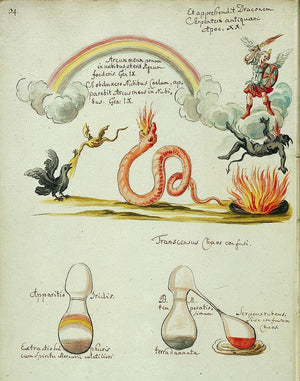 34.
Et apprehendit Draconem
Serpentem antiquum
Apoc. XX.
Arcum meum ponam
in nubibus et erit signum
foederis. Gen IX
Cum obduxero Nubibus Coelum, ap-
parebit Arcus meus in Nubi-
bus. Gen: IX.
Transcensus Chaos confusi.
Apparitio Iridis.
Extractio
cum spiritu Mercurii
terra damnata
Serpens rubens,
sive confusum
Chaos.